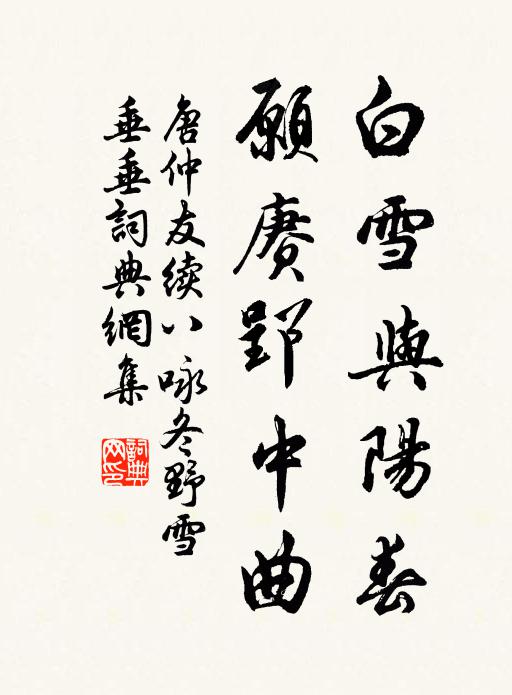 白雪與陽春
願賡郢中曲
唐仲友續八咏冬野雪
垂垂詞典網集
詞典网印